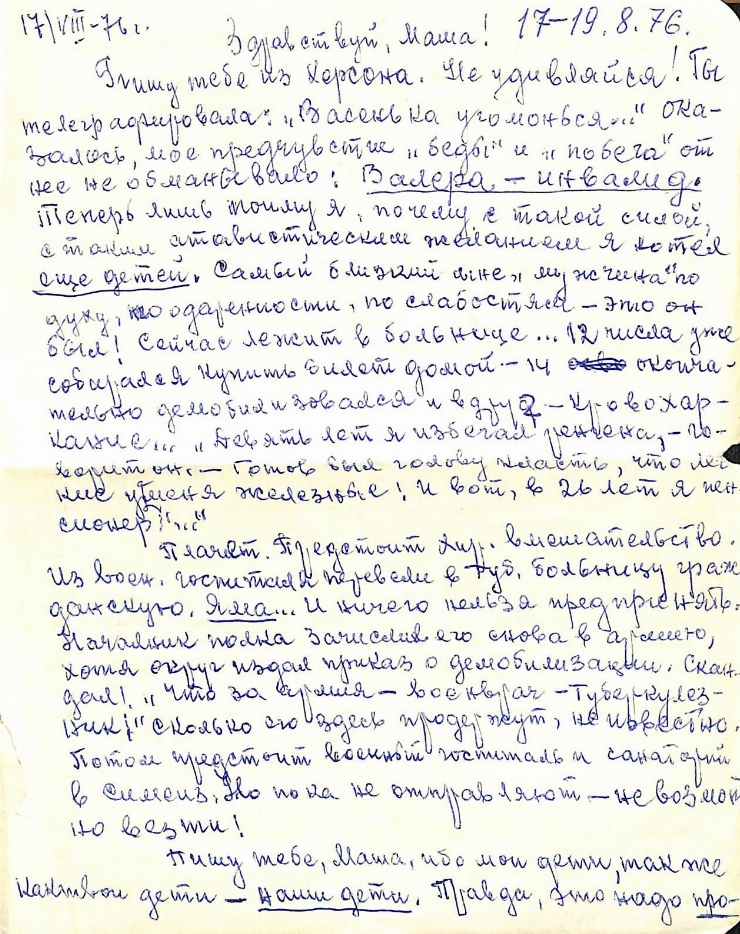 17/VIII-76 г.
Здравствуй, Маша! 17-19.8.76.
Пишу тебе из Херсона. Не удивляйся! Ты
телеграфировала: „Васенька угомонься..." Ока-
залось, мое предчувстие „беды" и „побега" от
нее не обманывало: Валера - инвалид.
Теперь лишь пойму я, почему с такой силой,
с таким атавистическим желанием я хотел
еще детей. Самый близкий мне „мужчина" по
духу, по одаренности, по слабостям - это он
был! Сейчас лежит в больнице... 12 числа уже
собирался купить билет домой - 14 оконча-
тельно демобилизовался и вдруг - кровохар-
кание... „Девять лет я избегал рентгена, - го-
ворит он. - Готов был голову класть, что лег-
кие у меня железные! И вот, в 26 лет я пен-
сионер!..."
Плачет. Предстоит хир. вмешательство.
Из воен. госпиталя перевели в туб. больницу граж
данскую. Яма... И ничего нельзя предпринять.
Начальник полка зачислил его снова в армию,
хотя округ издал приказ о демобилизации. Скан-
дал! „Что за армия - военврач - туберкулез-
ник!" Сколько его здесь продержут, не известно.
Потом предстоит военный госпиталь и санаторий
в Симеиз. Но пока не отправляют - не возмож
но везти!
Пишу тебе, Маша, ибо мои дети, так же
как твои дети - наши дети. Правда, это надо про-